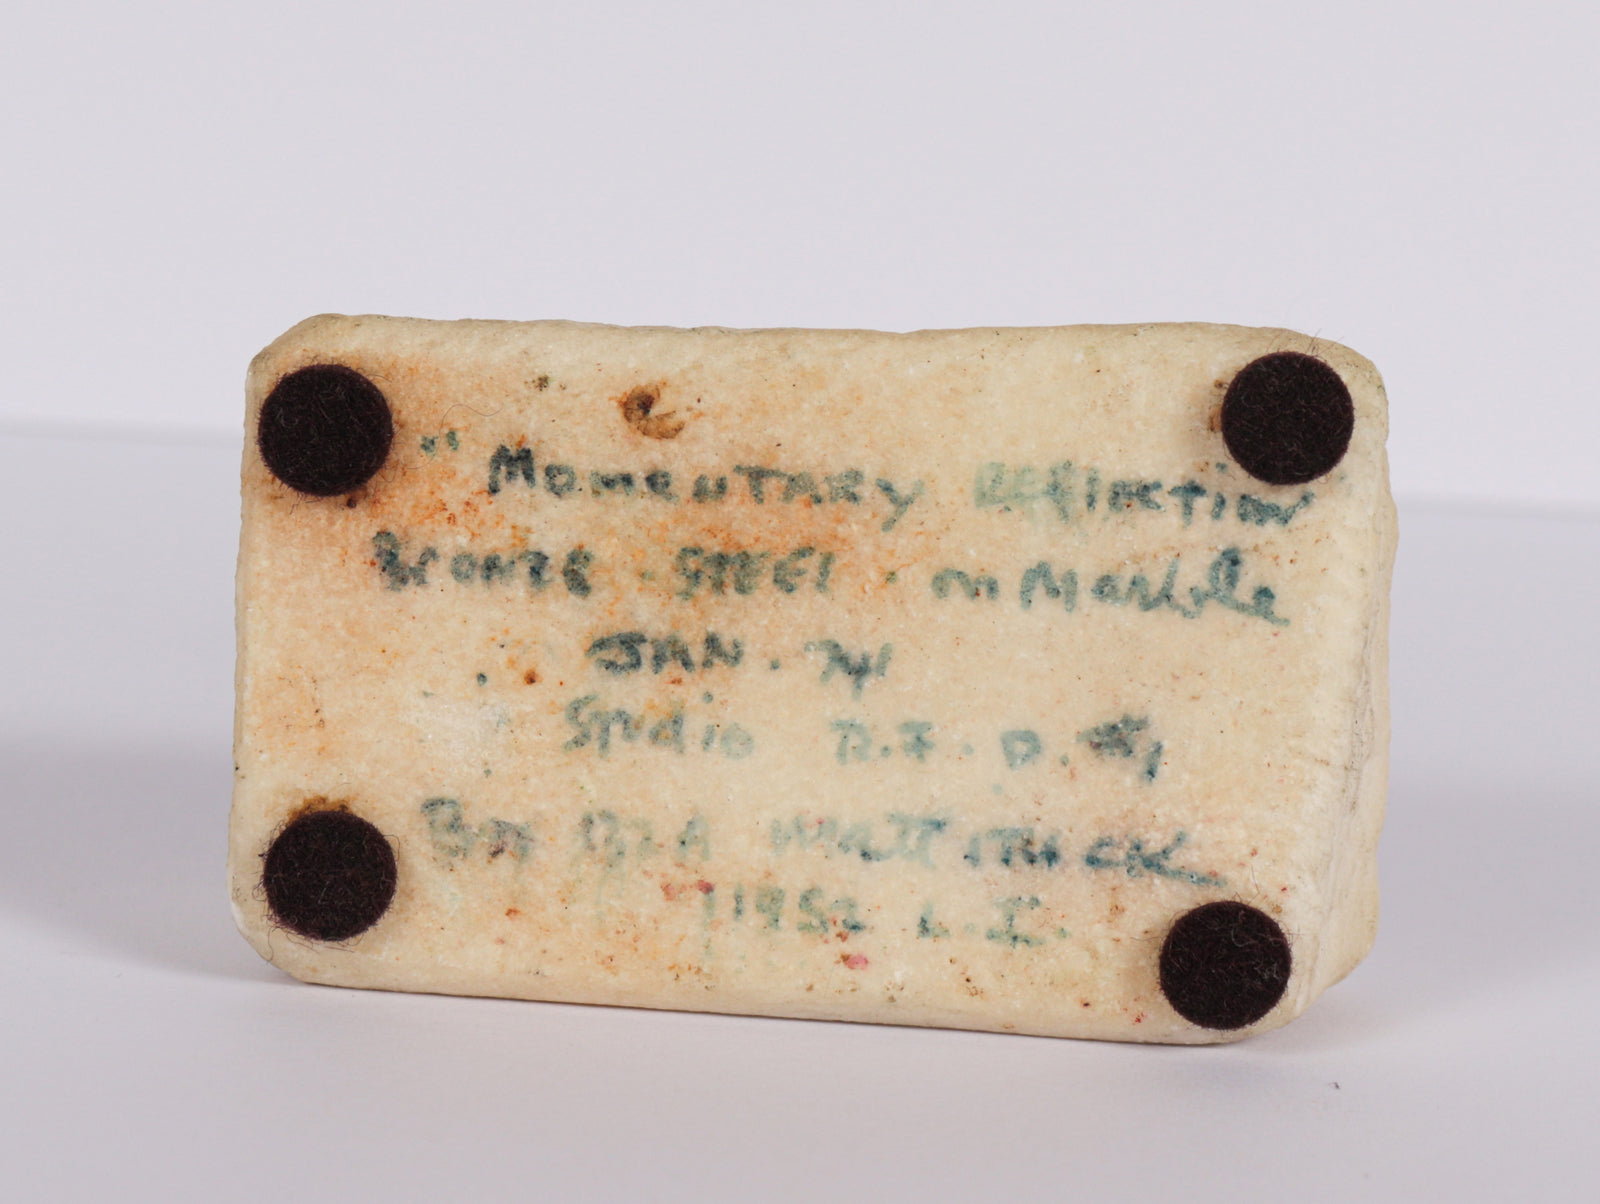 " MOMENTARY REFLECTION
BRONZE · STEEL · on Marble
JAN. 74
Studio R.F.D. #1
Box MATTITUCK
11952 L.I.